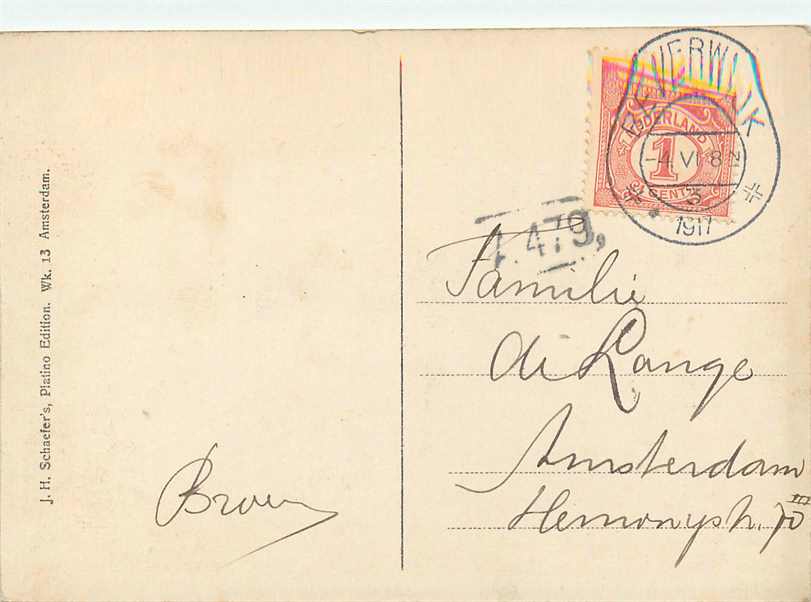 J. H. Schaefer's, Platino Edition. Wk. 13 Amsterdam.
BEVERWIJK
-4 VI 8
5
1917
NEDERLAND
1
CENT
479,
Familie
de Lange
Amsterdam
Hemonystr. 70 III